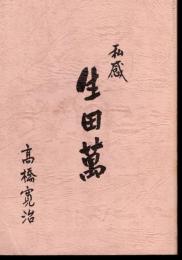 私感
生田萬
高橋寛治